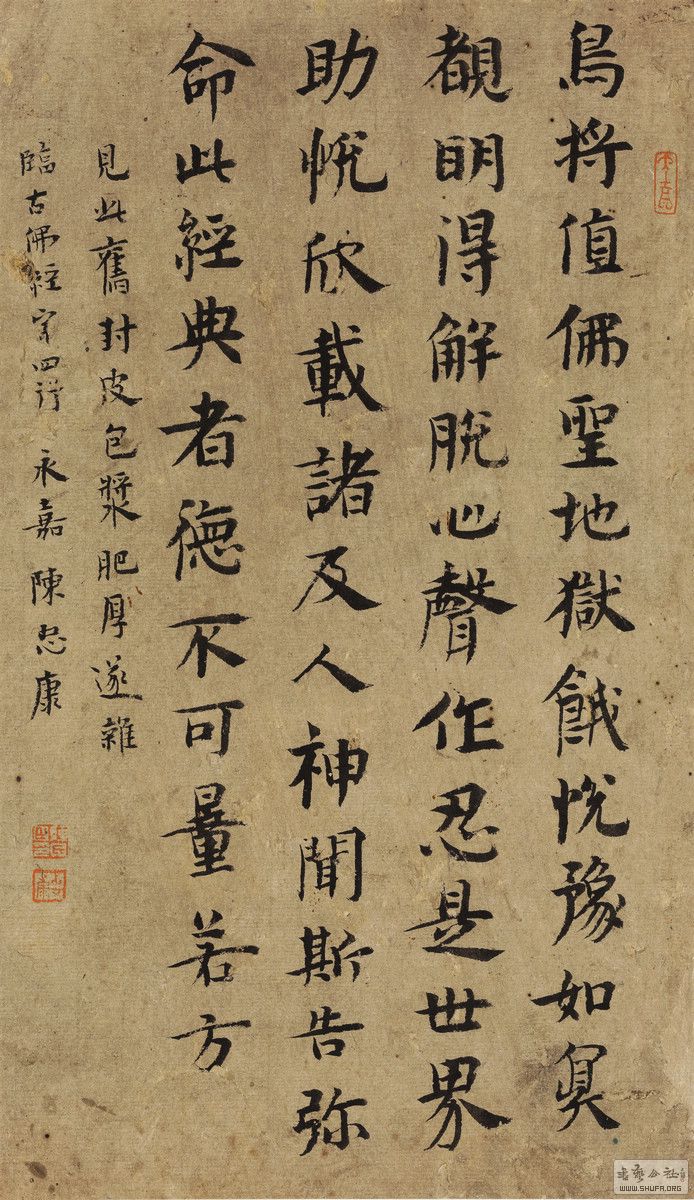 鳥将值佛聖地獄餓悅豫如冥
覩明得解脫心聲作忍是世界
助悅欣載諸及人神聞斯告弥
命此經典者德不可量若方
見此舊封皮包漿肥厚遂雜
臨古佛經四行 永嘉陳忠康
书艺公社
WWW.SHUFA.ORG